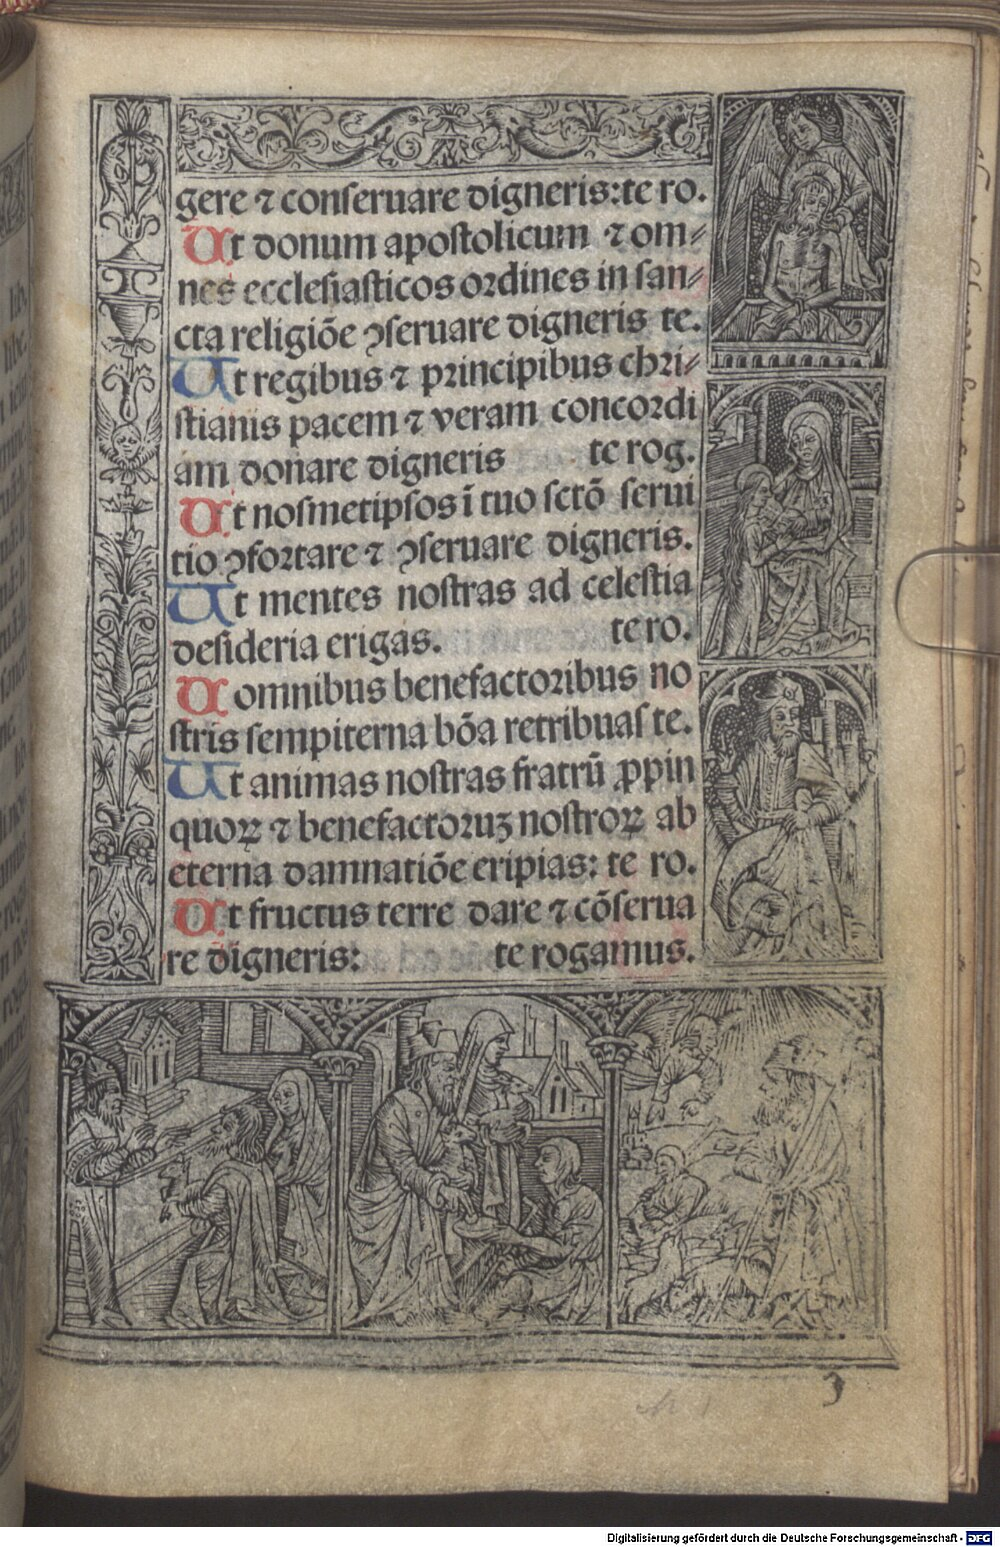 gere ⁊ conſeruare digneris: te ro.
Ut donum apoſtolicum ⁊ om⸗
nes eccleſiaſticos ordines in ſan⸗
cta religiōe ꝯſeruare digneris te.
Ut regibus ⁊ principibus chri⸗
ſtianis pacem ⁊ veram concordi
am donare digneris te rog.
Ut noſmetipſos ī tuo ſctō ſerui
tio ꝯfortare ⁊ ꝯſeruare digneris.
Ut mentes noſtras ad celeſtia
deſideria erigas. te ro.
Ut omnibus benefactoribus no
ſtris ſempiterna bōa retribuaſ te.
Ut animas noſtras fratrū ꝓpin
quoꝝ ⁊ benefactoruꝫ noſtroꝝ ab
eterna damnatiōe eripias: te ro.
Ut fructus terre dare ⁊ cōſerua
re digneris: te rogamus.
Digitalisierung gefördert durch die Deutsche Forschungsgemeinschaft - DFG